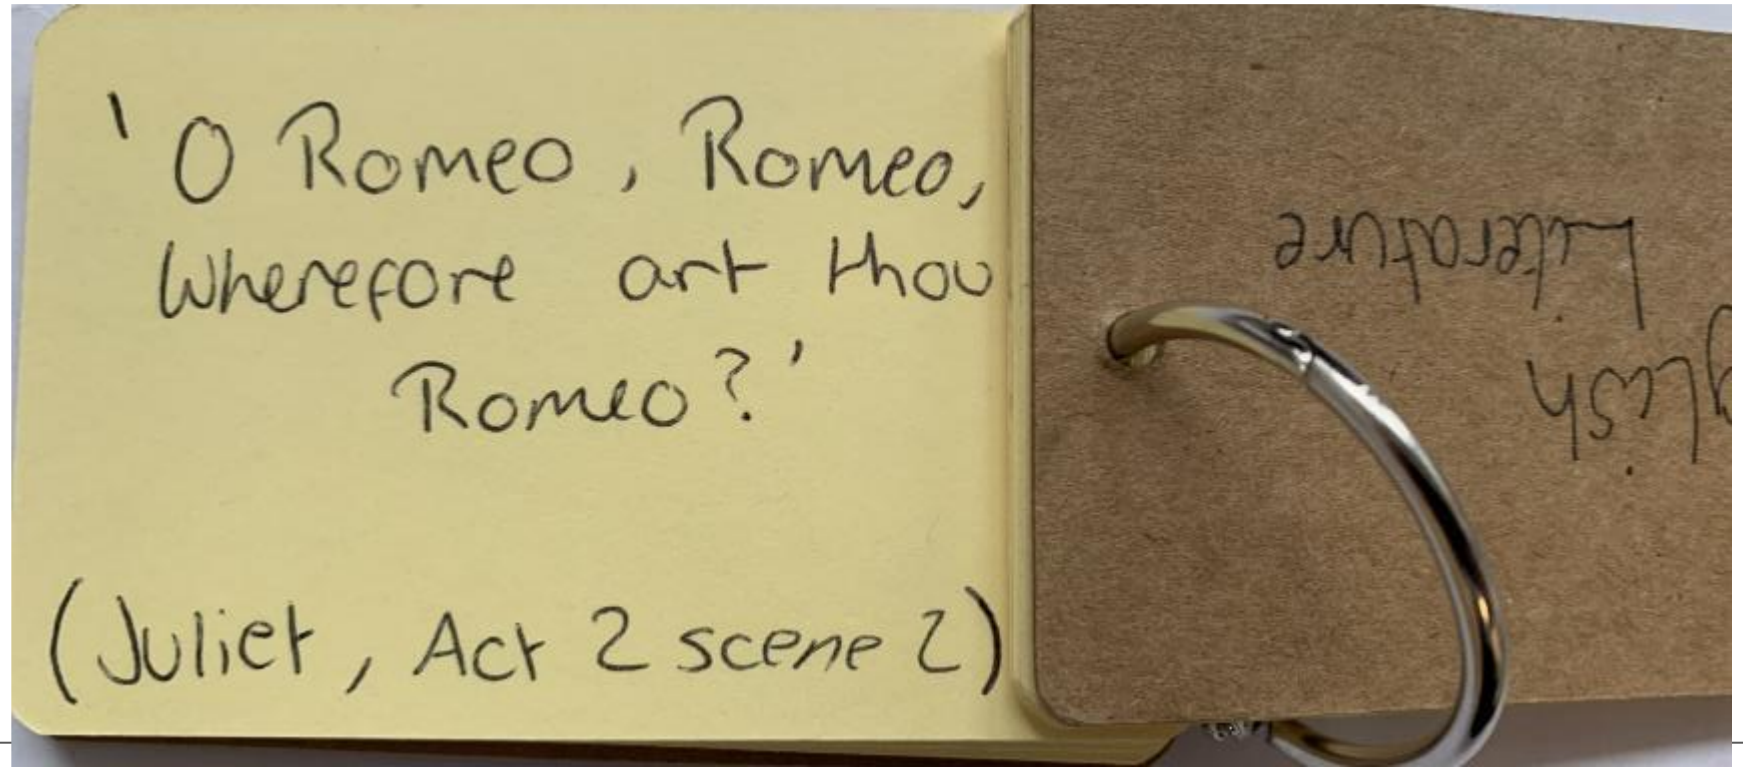 'O Romeo, Romeo,
wherefore art thou
Romeo?'
(Juliet, Act 2 scene 2)
glish
Literature